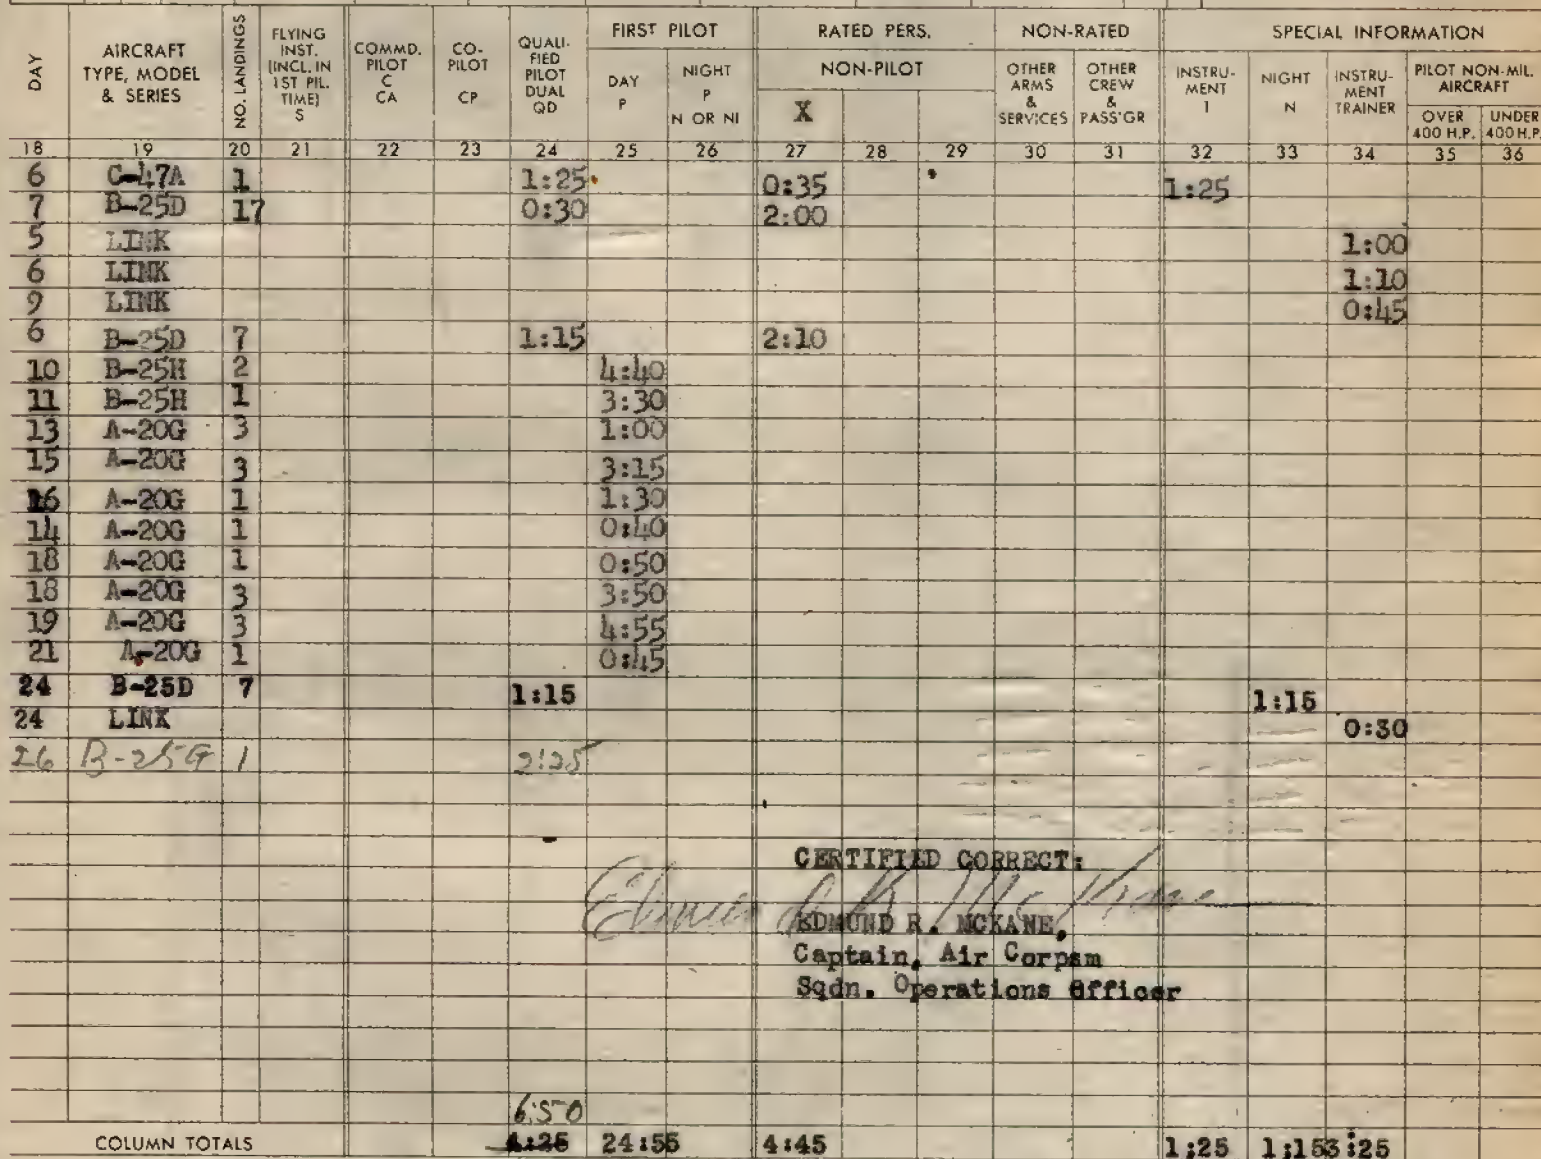 DAY
AIRCRAFT TYPE, MODEL & SERIES
NO. LANDINGS
FLYING INST. (INCL. IN 1ST PIL. TIME) S
COMMD. PILOT C CA
CO-PILOT CP
QUALI-FIED PILOT DUAL QD
FIRST PILOT
DAY P
NIGHT P N OR NI
RATED PERS.
NON-PILOT
X
NON-RATED
OTHER ARMS & SERVICES
OTHER CREW & PASS'GR
SPECIAL INFORMATION
INSTRU-MENT I
NIGHT N
INSTRU-MENT TRAINER
PILOT NON-MIL. AIRCRAFT
OVER 400 H.P.
UNDER 400 H.P.
18 19 20 21 22 23 24 25 26 27 28 29 30 31 32 33 34 35 36
6 C-47A 1 1:25 0:35 1:25
7 B-25D 17 0:30 2:00
5 LINK 1:00
6 LINK 1:10
9 LINK 0:45
6 B-25D 7 1:15 2:10
10 B-25H 2 4:40
11 B-25H 1 3:30
13 A-20G 3 1:00
15 A-20G 3 3:15
16 A-20G 1 1:30
14 A-20G 1 0:40
18 A-20G 1 0:50
18 A-20G 3 3:50
19 A-20G 3 4:55
21 A-20G 1 0:45
24 B-25D 7 1:15 1:15
24 LINK 0:30
26 B-25G 1 2:25
CERTIFIED CORRECT:
Edmund R. McKane
EDMUND R. MCKANE,
Captain, Air Corpsm
Sqdn. Operations Officer
6:50
COLUMN TOTALS 4:25 24:55 4:45 1;25 1;15 3:25